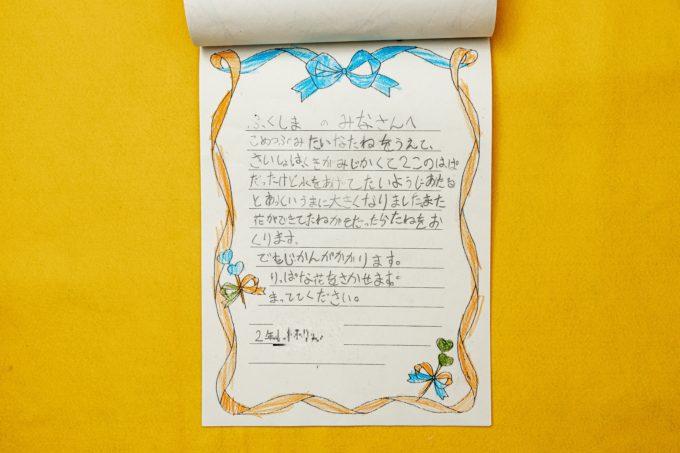 ふくしま の みなさんへ
こめつぶみたいなたねをうえて、
さいしょは、くきがみじかくて2このはっぱ
だったけど水をあげてたいようにあたる
とあっというまに大きくなりました。また
花ができてたねができたらたねをお
くります。
でもじかんがかかります。
りっぱな花をさかせます。
まっててください。
2年